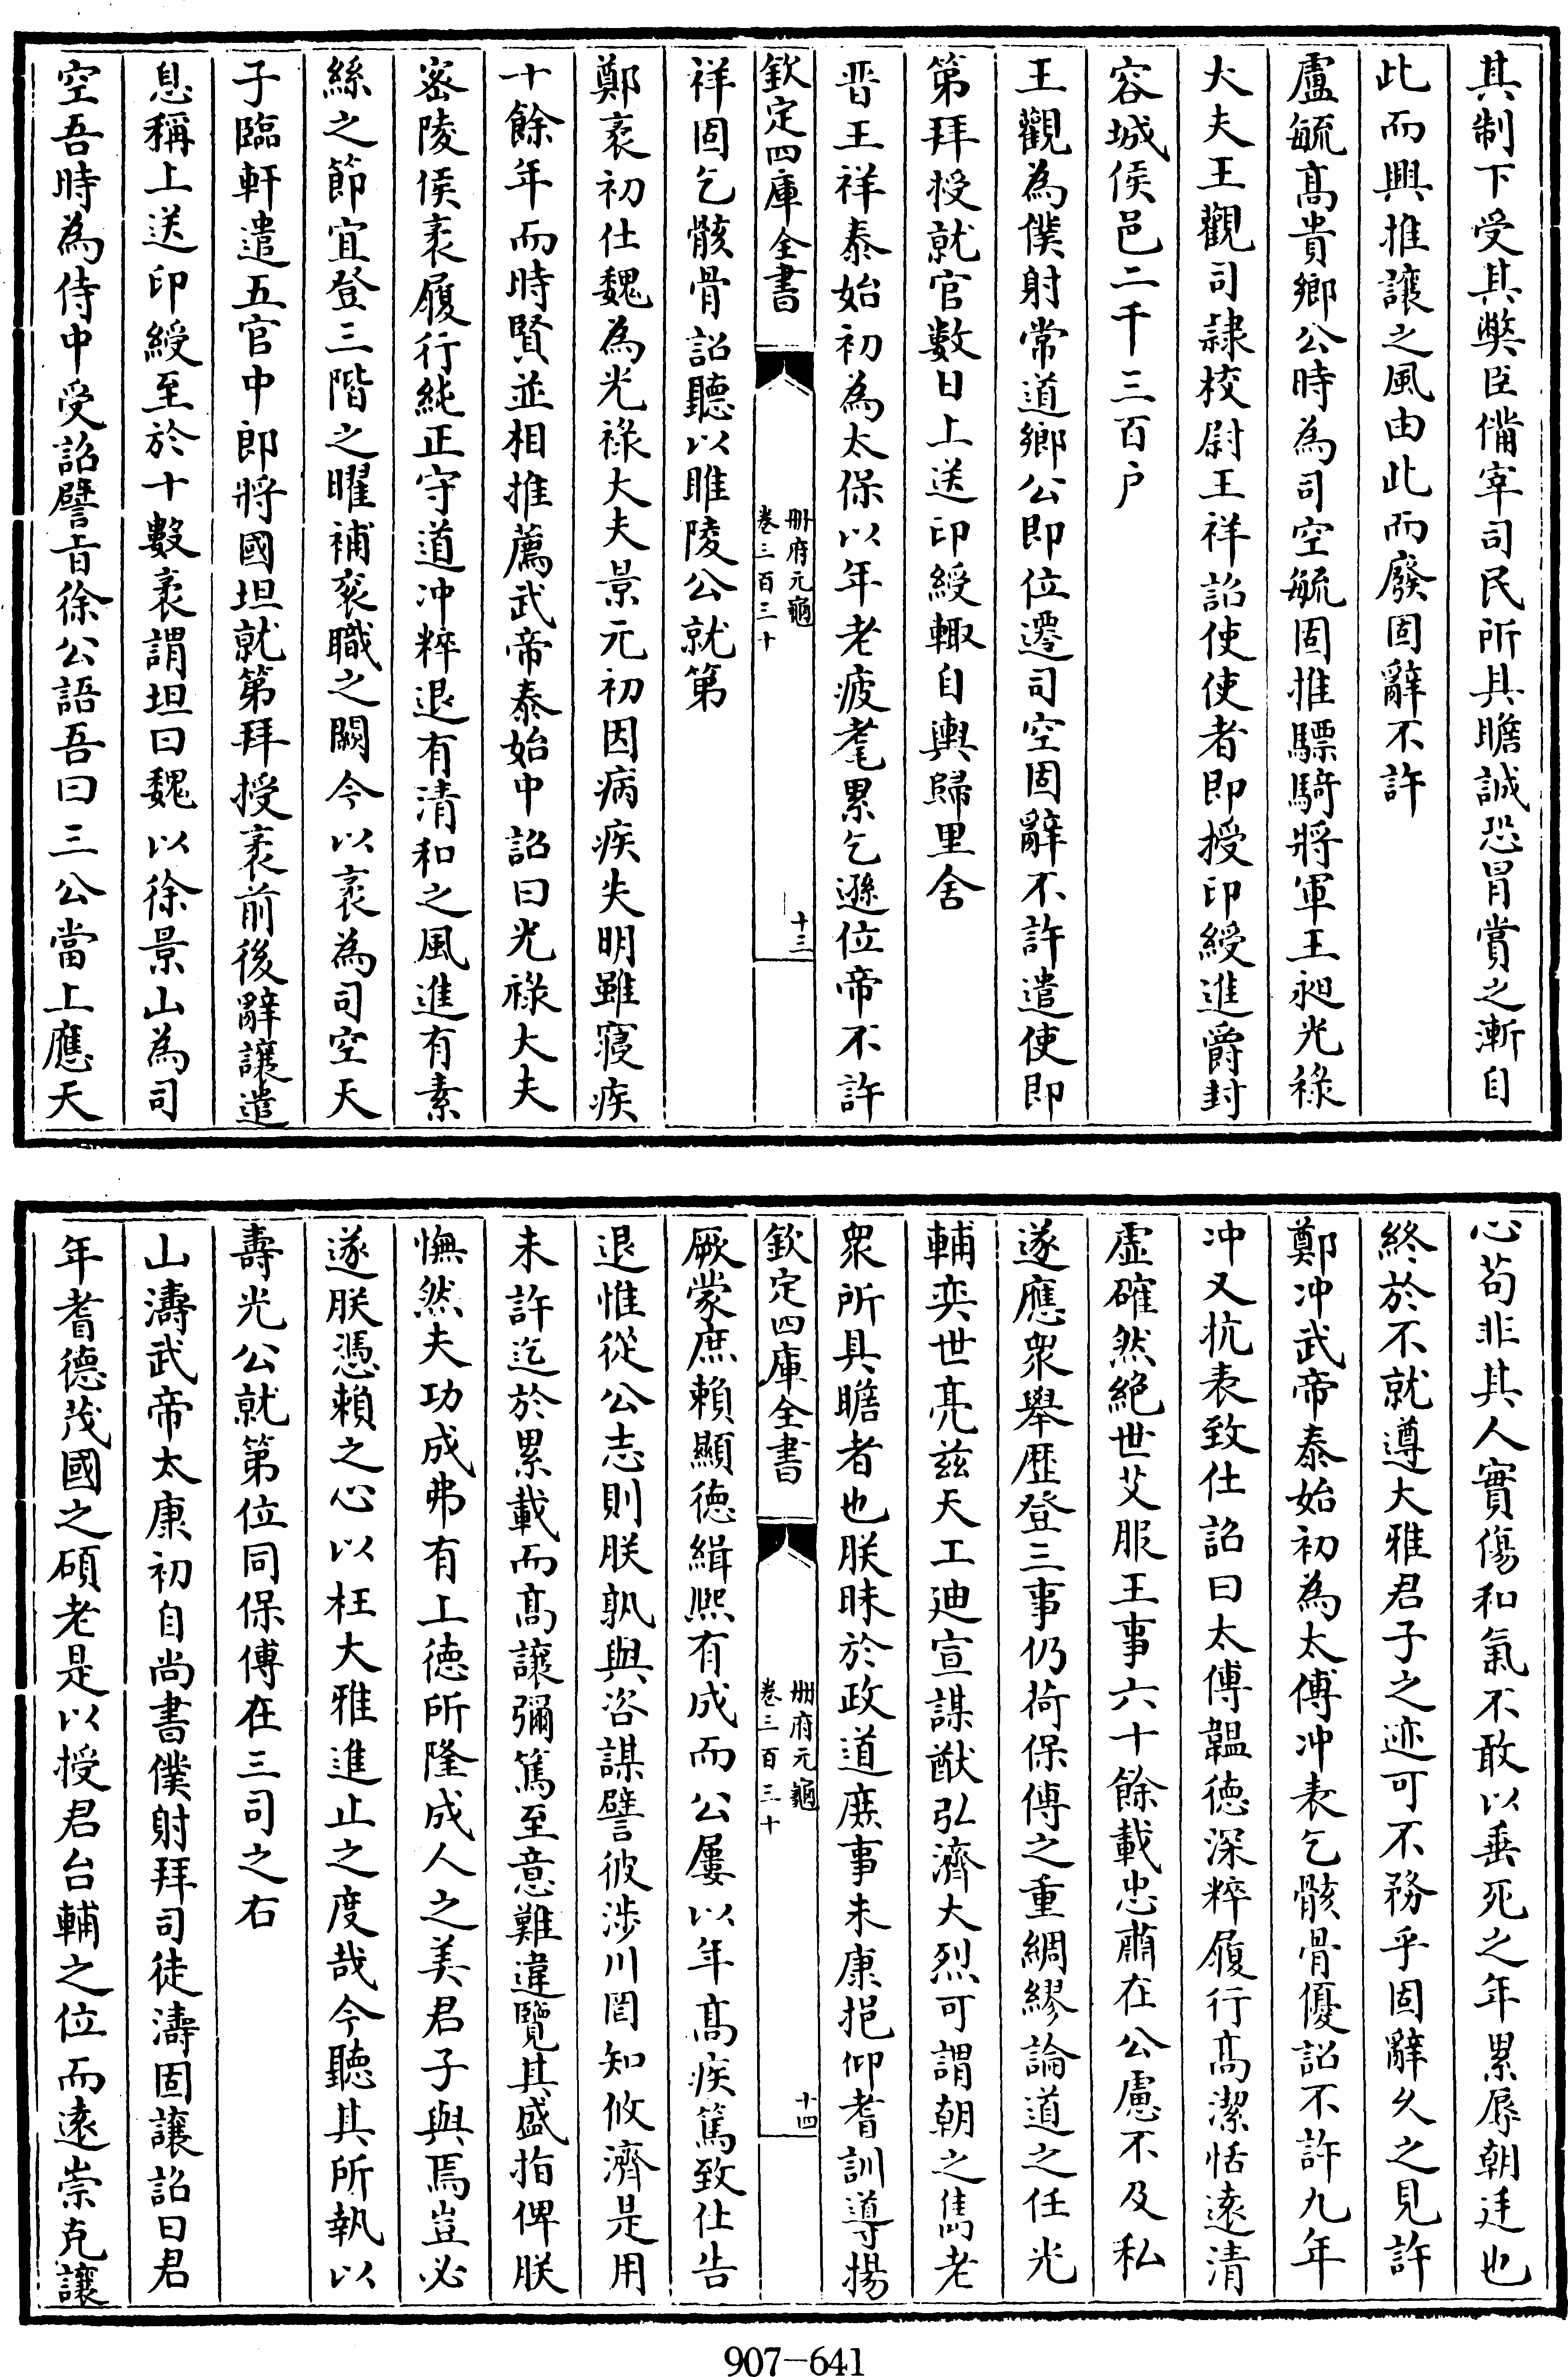 其制下受其弊臣備宰司民所具瞻誠恐冒賞之漸自
此而興推讓之風由此而廢固辭不許
盧毓髙貴鄉公時為司空毓固推驃騎將軍王昶光祿
大夫王觀司隸校尉王祥詔使使者即授印綬進爵封
容城侯邑二千三百户
王觀為僕射常道鄉公即位遷司空固辭不許遣使即
第拜授就官數日上送印綬輙自輿歸里舍
晋王祥泰始初為太保以年老疲耄累乞遜位帝不許
欽定四庫全書
冊府元龜
卷三百三十
十三
祥固乞骸骨詔聽以睢陵公就第
鄭袤初仕魏為光祿大夫景元初因病疾失明雖寢疾
十餘年而時賢並相推薦武帝泰始中詔曰光祿大夫
密陵侯袤履行純正守道冲粹退有清和之風進有素
絲之節宜登三階之曜補衮職之闕今以袤為司空天
子臨軒遣五官中郎將國坦就第拜授袤前後辭讓遣
息稱上送印綬至於十數袤謂坦曰魏以徐景山為司
空吾時為侍中受詔譬旨徐公語吾曰三公當上應天
心苟非其人實傷和氣不敢以垂死之年累辱朝廷也
終於不就遵大雅君子之迹可不務乎固辭乆之見許
鄭冲武帝泰始初為太傅冲表乞骸骨優詔不許九年
冲又抗表致仕詔曰太傅韞徳深粹履行髙潔恬逺清
虛確然絶世艾服王事六十餘載忠肅在公慮不及私
遂應衆舉歴登三事仍荷保傅之重綢繆論道之任光
輔奕世亮兹天工迪宣謀猷弘濟大烈可謂朝之雋老
衆所具瞻者也朕昧於政道庶事未康挹仰耆訓導揚
欽定四庫全書
冊府元龜
卷三百三十
十四
厥蒙庶賴顯徳緝熙有成而公屢以年髙疾篤致仕告
退惟從公志則朕孰與咨謀譬彼涉川罔知攸濟是用
未許迄於累載而髙讓彌篤至意難違覽其盛指俾朕
憮然夫功成弗有上徳所隆成人之美君子與焉豈必
遂朕憑賴之心以枉大雅進止之度哉今聽其所執以
壽光公就第位同保傅在三司之右
山濤武帝太康初自尚書僕射拜司徒濤固讓詔曰君
年耆徳茂國之碩老是以授君台輔之位而逺崇克讓
907-641